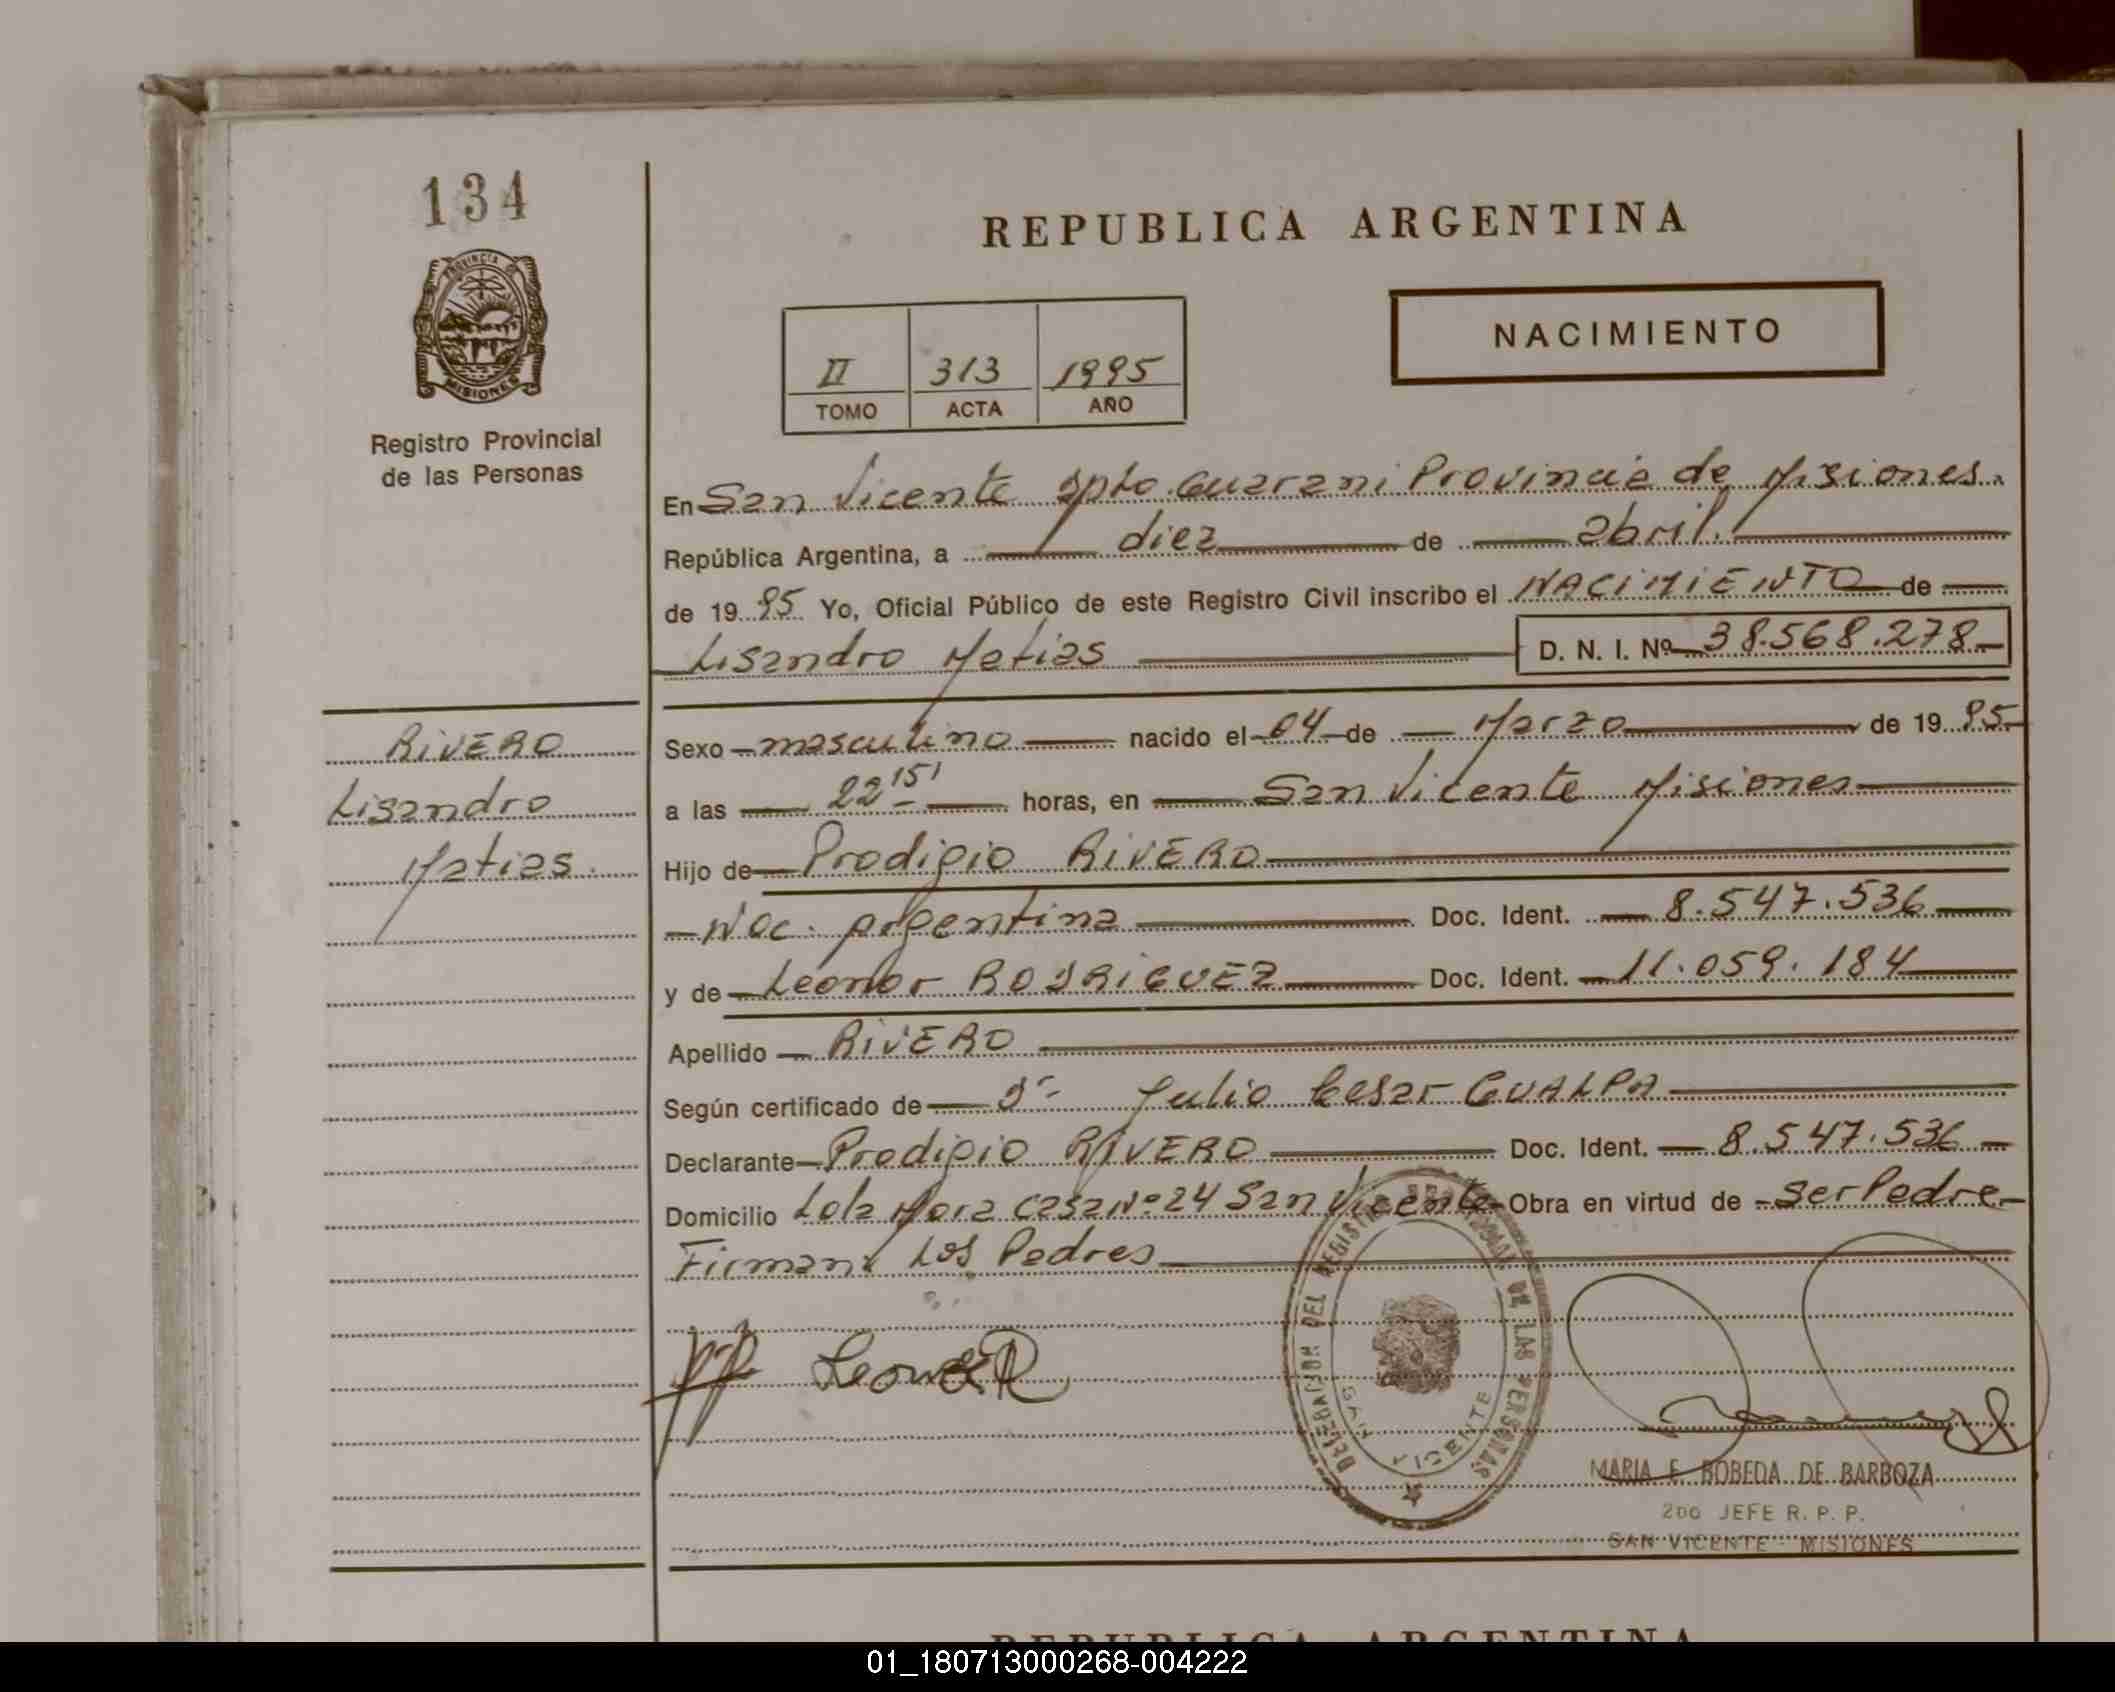 134
PROVINCIA DE
MISIONES
Registro Provincial
de las Personas
REPUBLICA ARGENTINA
NACIMIENTO
II 313 1995
TOMO ACTA AÑO
En San Vicente Dpto. Guarani Provincia de Misiones.
República Argentina, a diez de abril.
de 19 95 Yo, Oficial Público de este Registro Civil inscribo el NACIMIENTO de
Lisandro Matias D. N. I. Nº 38.568.278
RIVERO
Lisandro
Matias.
Sexo masculino nacido el 04 de Marzo de 19 95
a las 22 15' horas, en San Vicente Misiones
Hijo de Prodigio RIVERO
Nac. argentina Doc. Ident. 8.547.536
y de Leonor RODRIGUEZ Doc. Ident. 11.059.184
Apellido RIVERO
Según certificado de Dr Julio Cesar GUALPA
Declarante Prodigio RIVERO Doc. Ident. 8.547.536
Domicilio Lola Mora Casa Nº 24 San Vicente Obra en virtud de ser Padre
Firman Los Padres
Leonor R
DELEGACION DEL REGISTRO PROVINCIAL DE LAS PERSONAS
SAN VICENTE
MARIA E. BOBEDA DE BARBOZA
2do JEFE R. P. P.
SAN VICENTE MISIONES
REPUBLICA ARGENTINA
01_180713000268-004222